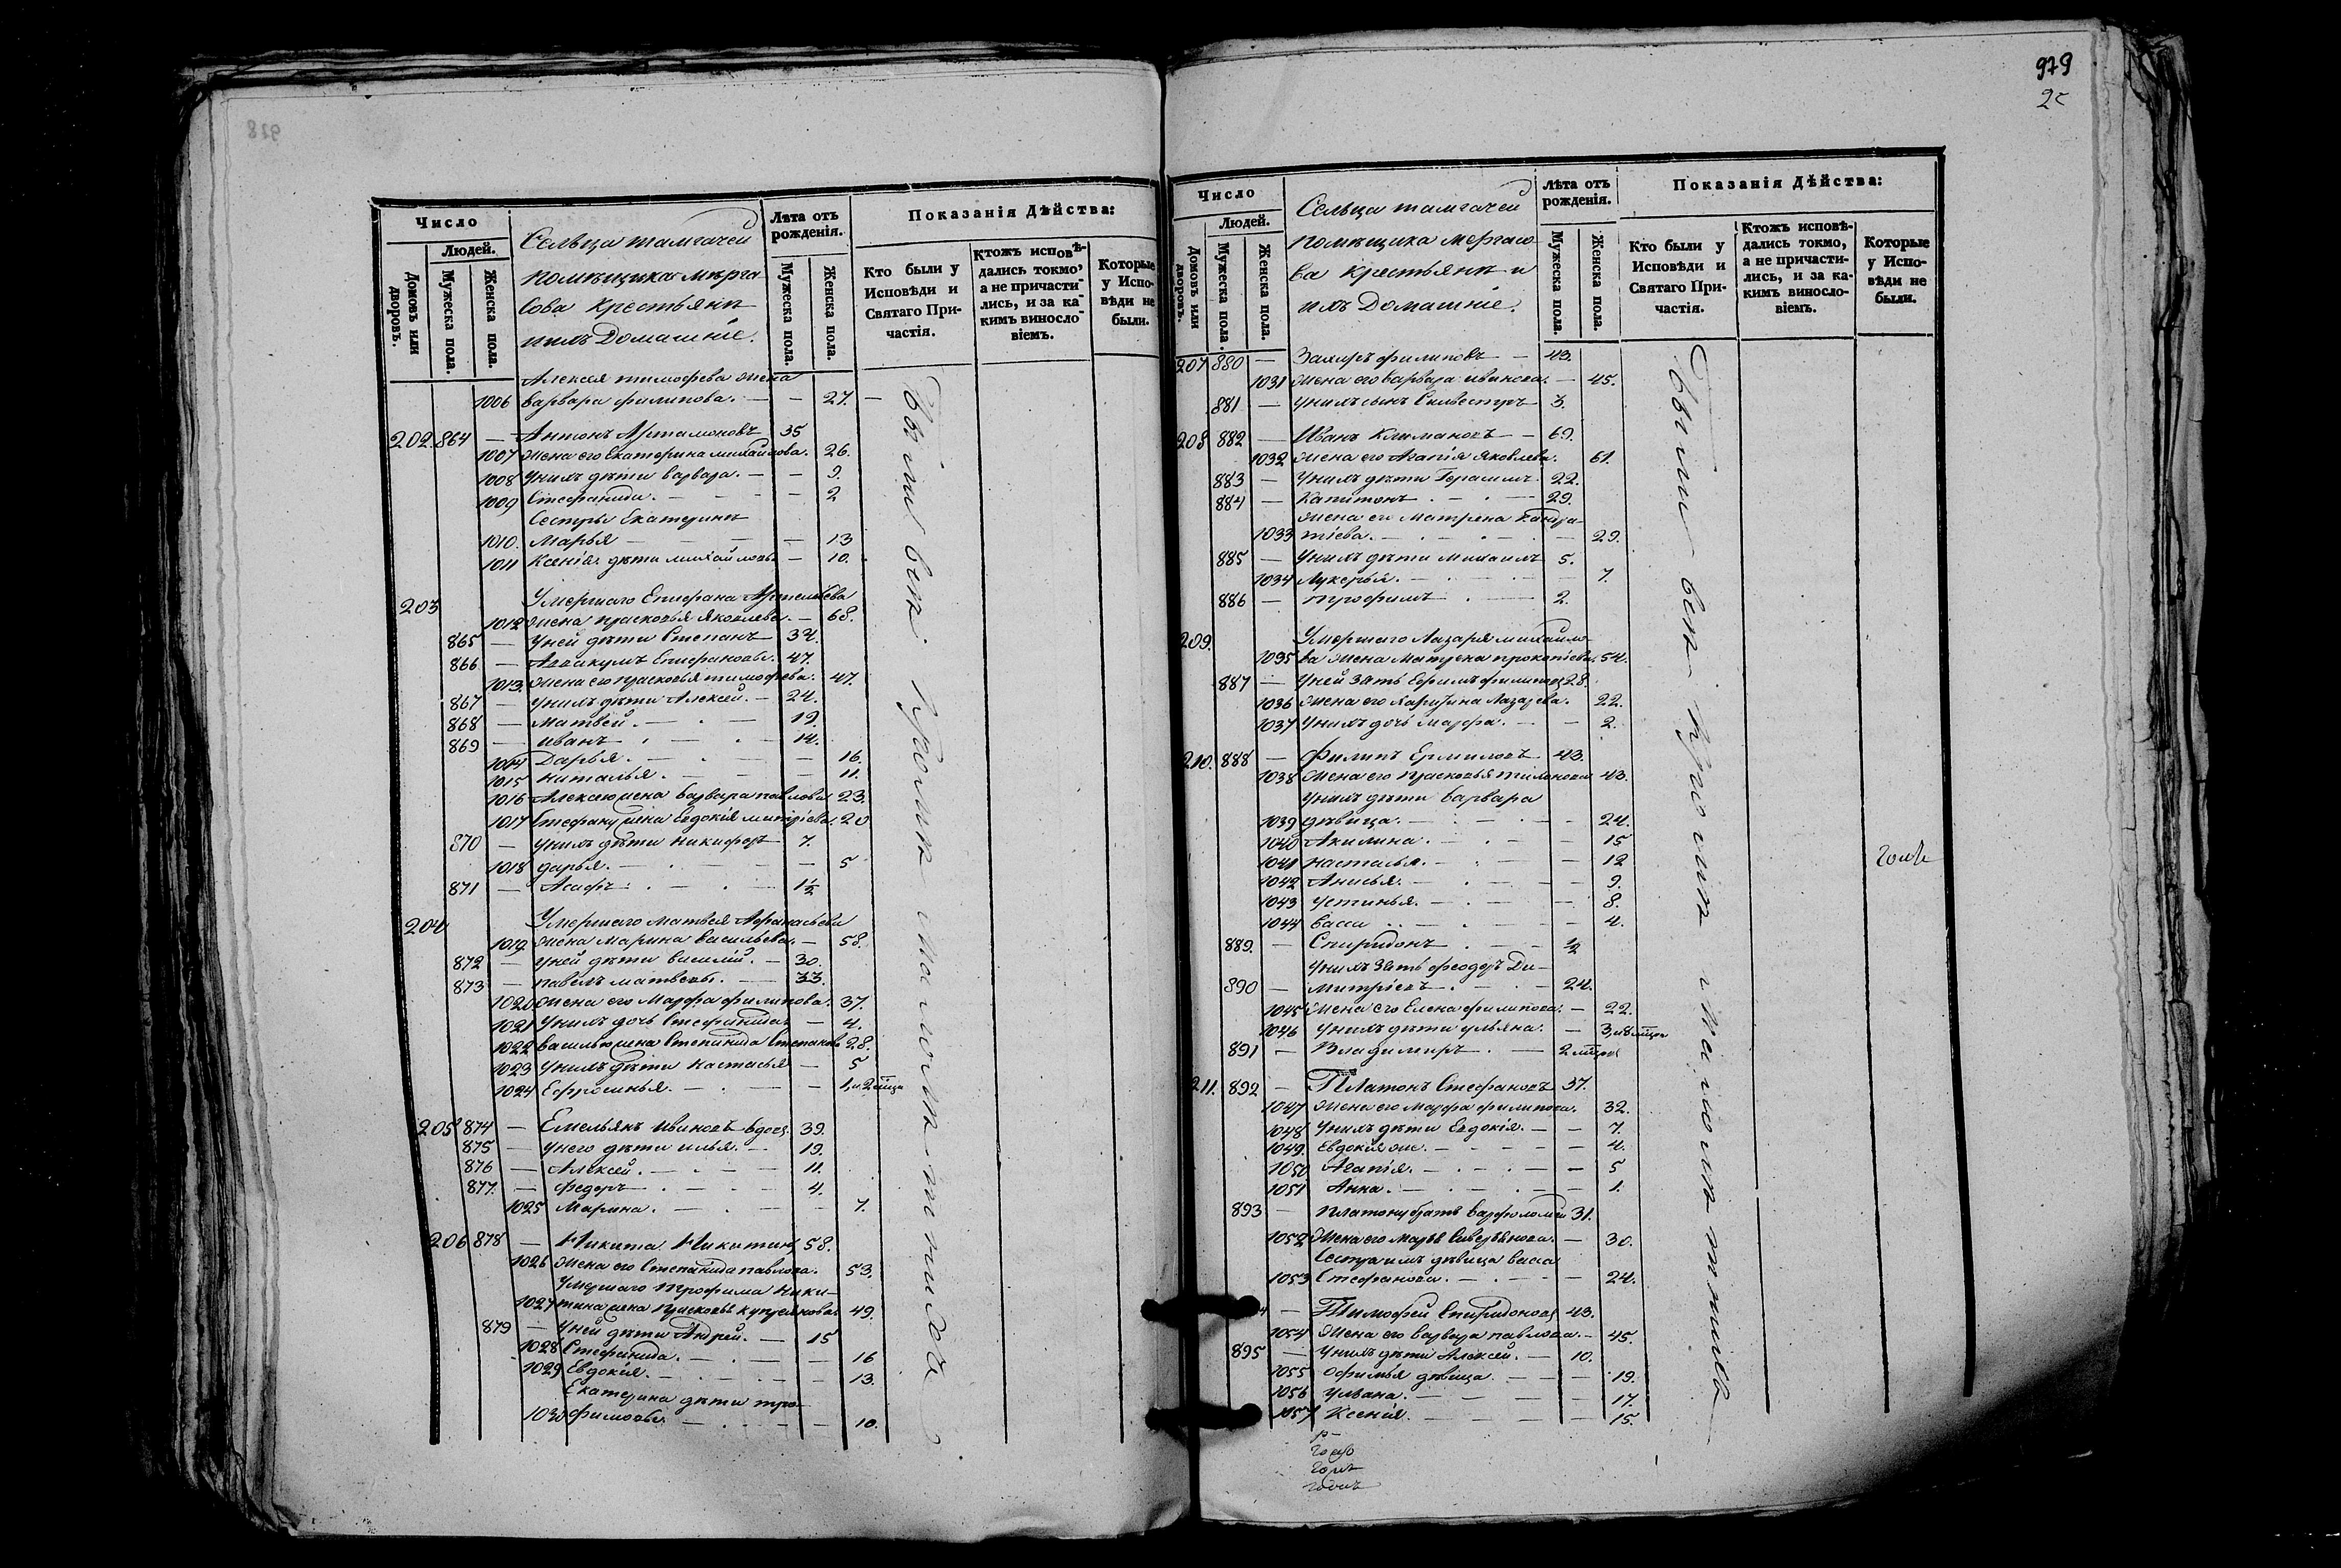 978
Число
Людей.
Домовъ или дворовъ.
Мужеска пола.
Женска пола.
Сельца тамгачей
помѣщика мерга
сова крестьянъ
и ихъ Домашніе.
Лѣта отъ рожденія.
Мужеска пола.
Женска пола.
Показанія Дѣйства:
Кто были у Исповѣди и Святаго Причастія.
Ктожъ исповѣдались токмо, а не причастились, и за какимъ винословіемъ.
Которые у Исповѣди не были.
Алексея тимофева жена
1006 варвара филипова. — — 27.
202. 864 — Антонъ Артамоновъ 35
1007 жена его Екатерина михайлова. 26.
1008 Унихъ дѣти варвара. — — 9.
1009 Стефанида. — — 2
Сестры Екатерины
1010. Марья — — 13
1011 Ксенія дѣти михайловы — 10.
203 Умершаго Епифана Артемьева
1012 жена прасковья Яковлева. — 68.
865 — Уней дѣти Степанъ 32.
866 — Аввакумъ Епифановы. 47.
1013. жена его прасковья тимофева. 47.
867 — унихъ дѣти Алексей. — 24.
868 — матвей. — 19.
869 — иванъ — 14.
1014 Дарья. — — 16.
1015 наталья. — — 11.
1016 Алексею жена варвара павлова 23.
1017 Стефану жена Евдокія митріева. 20
870 — унихъ дѣти никифоръ 7.
1018 дарья. — — 5
871 — Асафъ. — 1½
204 Умершаго матвея Афанасьева
1019. жена марина васильева. — 58.
872 — уней дѣти василій. — 30.
873 — павелъ матвеевы. — 33.
1020 жена его Марфа филипова. 37.
1021 унихъ дочь Стефанида — 4.
1022 василью жена Степанида Степанова 28.
1023 унихъ дѣти настасья — 5
1024 Ефросинья. — — 1 и 2 мца
205 874 — Емельянъ ивановъ вдовъ. 39.
875 — унего дѣти илья. — 19.
876 — Алексей. — 11.
877. — федоръ — 4.
1025 Марина. — — 7.
206 878 — Никита Никитинъ 58.
1026 жена его Степанида павлова. 53.
Умершаго трофима ники-
1027 тина жена прасковья купреянова 49.
879 — уней дѣти Андрей. — 15
1028 Стефанида. — — 16
1029 Евдокія. — — 13.
Екатерина дѣти тро-
1030 фимовы. — — 10.
были вси кроме малолетнихъ
979
Число
Людей.
Домовъ или дворовъ.
Мужеска пола.
Женска пола.
Сельца тамгачей
помѣщика Мергасо
ва крестьянъ и
ихъ Домашніе.
Лѣта отъ рожденія.
Мужеска пола.
Женска пола.
Показанія Дѣйства:
Кто были у Исповѣди и Святаго Причастія.
Ктожъ исповѣдались токмо, а не причастились, и за какимъ винословіемъ.
Которые у Исповѣди не были.
207 880 — Захаръ филиповъ — 43.
1031 жена его варвара иванова. — 45.
881 — унихъ сынъ Сильвестръ 3.
208 882 — Иванъ Климановъ — 69.
1032 жена его Агапія Яковлева. 61.
883 — Унихъ дѣти Герасимъ. 22.
884 — Капитонъ. — 29.
жена его Матрена
1033 тіева. — — 29.
885 — Унихъ дѣти Михаилъ 5.
1034 Лукерья. — — 7.
886 — трофимъ — 2.
209. Умершаго Лазаря михайло-
1035 ва жена Матрена прокопіева. 54.
887 — Уней зять Ефимъ филиповъ 28.
1036 жена его Лазарева. 22.
1037 Унихъ дочь Марфа. — — 2.
210. 888 — Филипъ Ермиловъ 43.
1038 жена его прасковья 43.
Унихъ дѣти варвара
1039 дѣвица. — — 24.
1040 Акилина. — — 15
1041 настасья. — — 12
1042 Анисья. — — 9.
1043 устинья. — — 8.
1044 Васса. — — 4.
889. — Спиридонъ — ½
Унихъ зять феодоръ Ди-
890 — митріевъ. — 24.
1045 жена его Елена филипова. — 22.
1046 унихъ дѣти ульяна. — 3 и 8 мцовъ
891 — Владимиръ. — 2 мцовъ
211. 892 — Платонъ Стефановъ 37.
1047 жена его Марфа филипова. 32.
1048 Унихъ дѣти Евдокія. — — 7.
1049. Евдокія же. — — 4.
1050 Агапія. — — 5
1051 Анна. — — 1.
893 — Платону братъ варфоломей 31.
1052 жена его Марья Северьянова. — 30.
Сестра имъ дѣвица васса
1053 Стефанова. — — 24.
4 — Тимофей Спиридоновъ 43.
1054 жена его варвара павлова. — 45.
895 — Унихъ дѣти Алексей. — 10.
1055 Офимья дѣвица. — — 19.
1056 Ульяна. — — 17.
1057 Ксенія. — — 15.
были вси кроме малолетнихъ